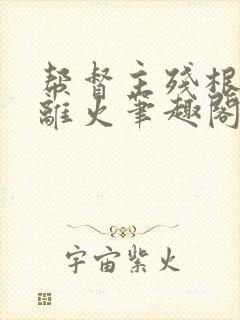 帮督主残根
离火笔趣阁
宇宙紫火